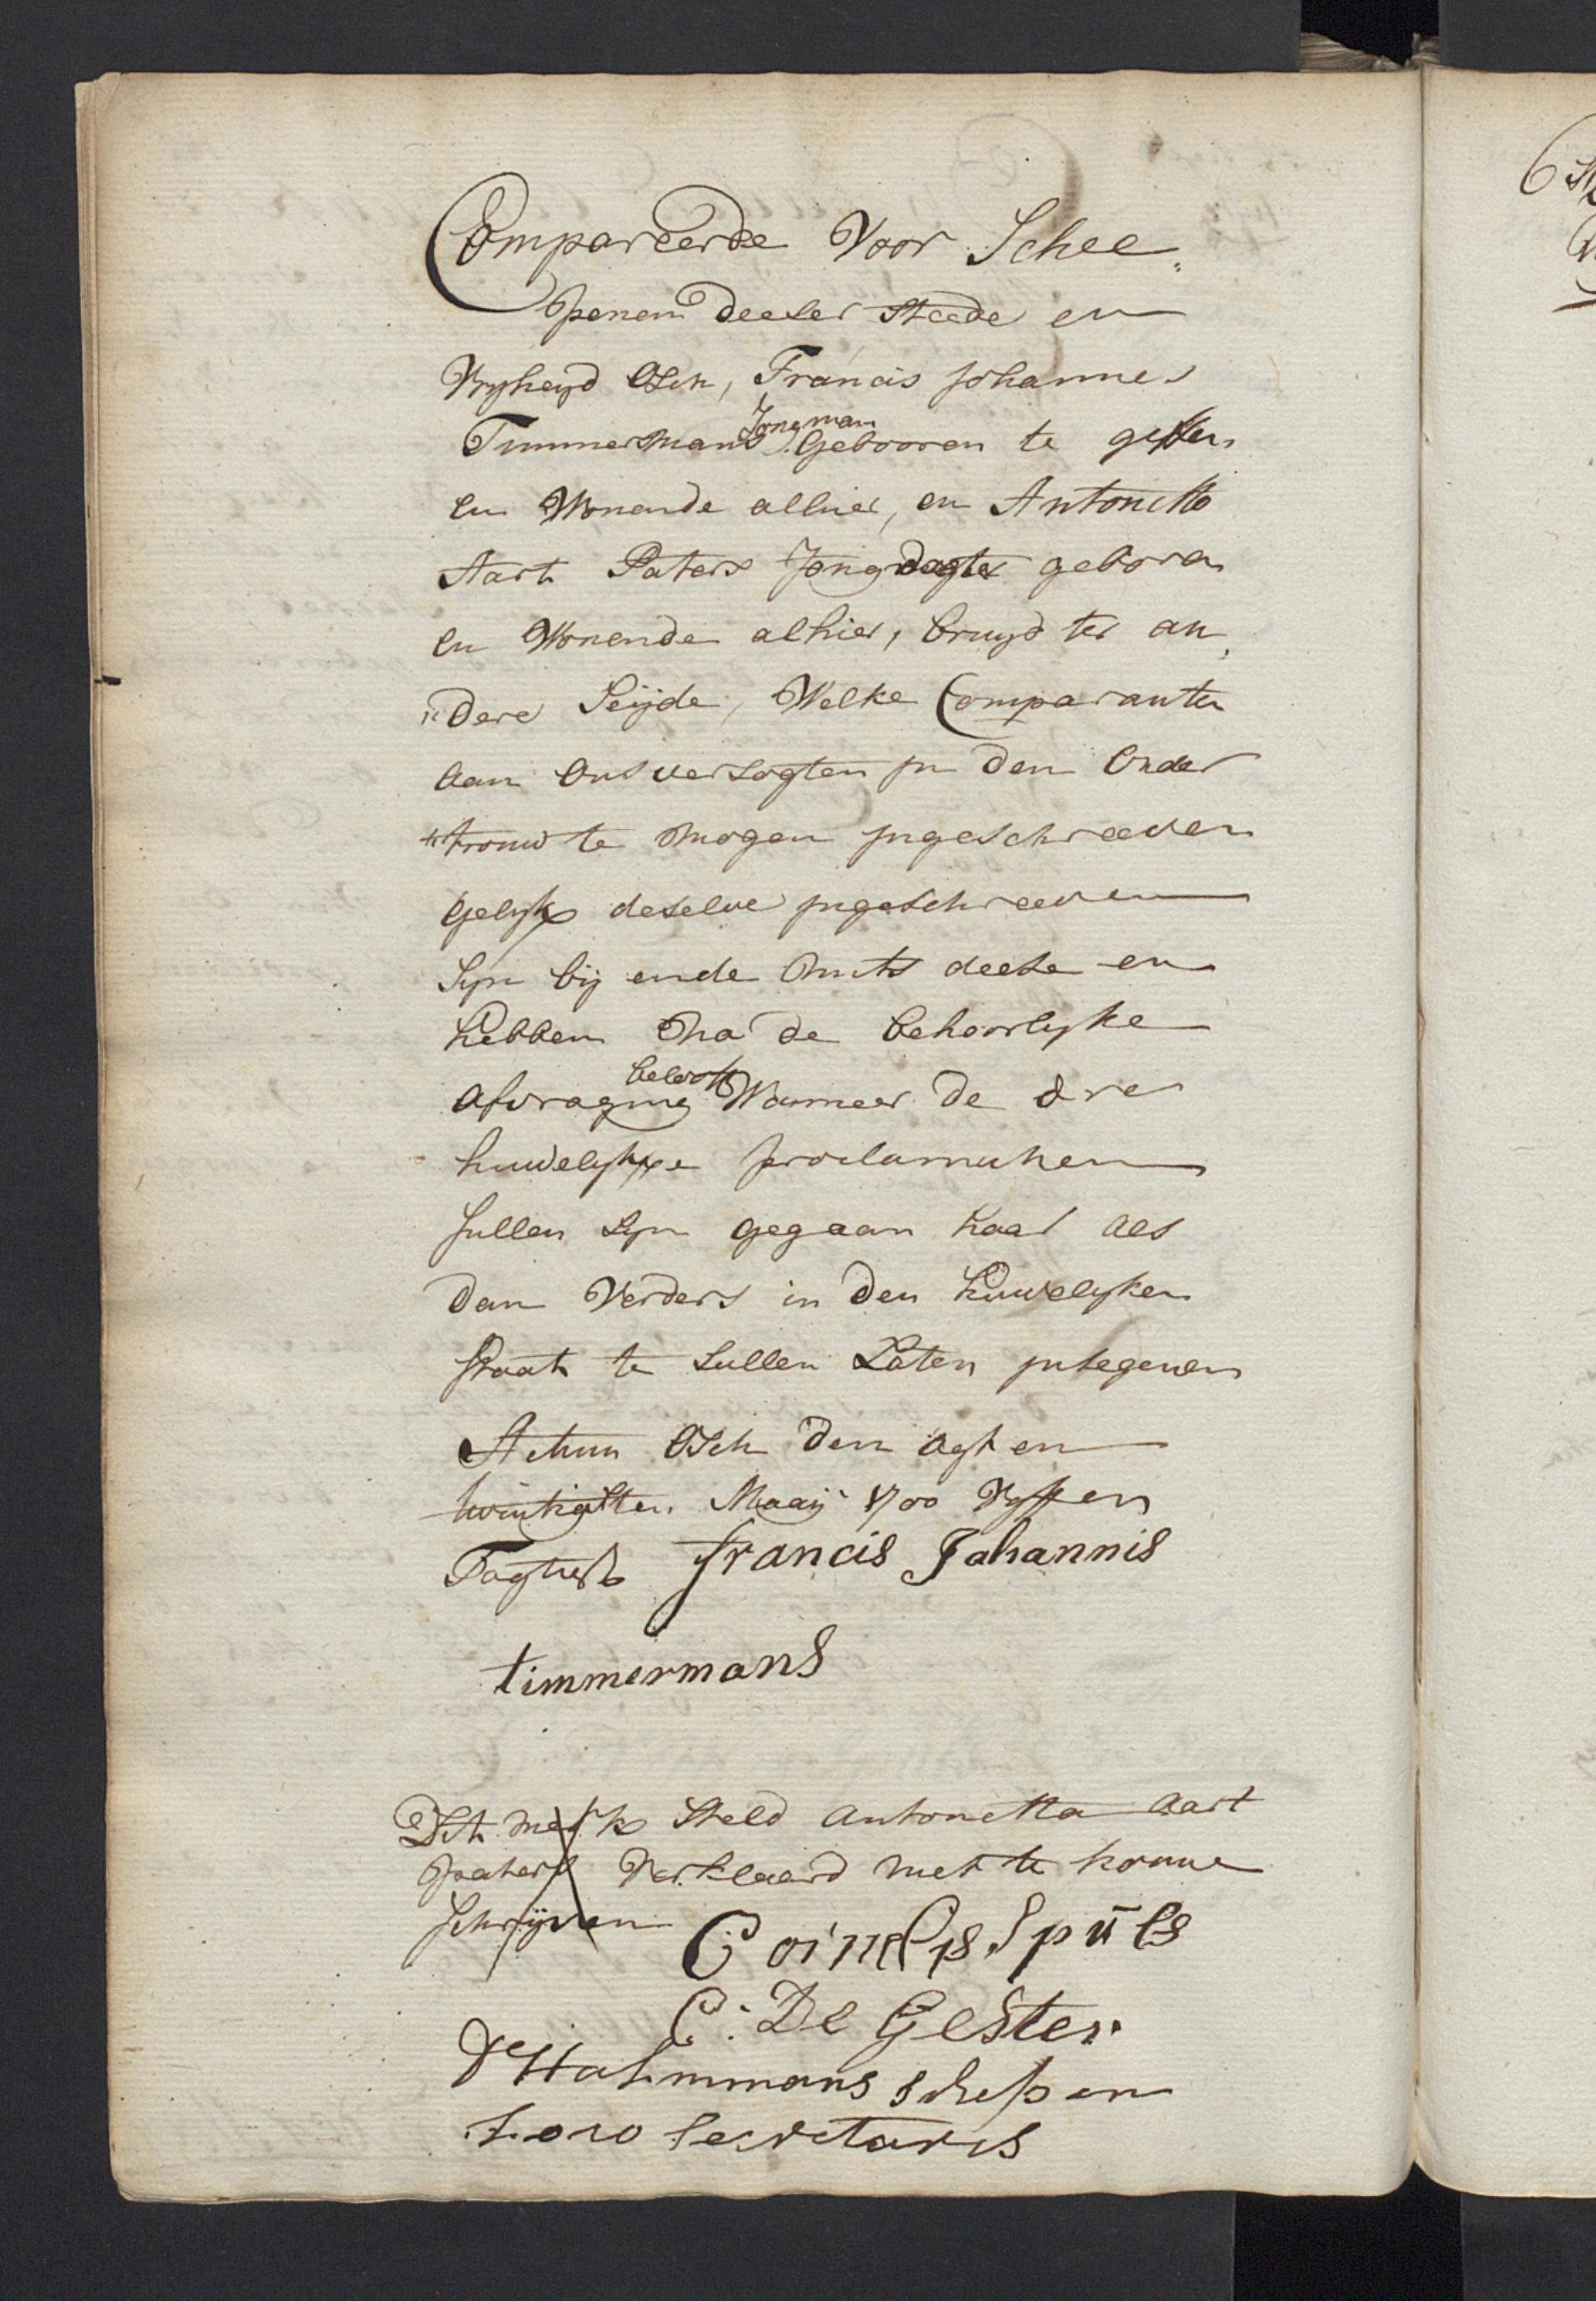 Compareerde Voor Schee„
penen deeser Steede en
Vryheyd Osch, Francis Johannes
Jongman
Timmermans Gebooren te geffen
en Wonende alhier, en Antonetta
Aart Paters Jongdogter geboren
en Wonende alhier, bruyd ter an„
„dere Seijde, Welke Comparanten
aan ons versogten in den Onder
„trouw te mogen ingeschreeven
Gelyk deselve ingeschreeven
Syn bij ende mits deese en
hebben na de behoorlyke
belooft
afvraging Wanneer de drie
huwelykxe proclamatien
sullen syn gegaan haar als
dan Verders in den huwelyken
Staat te sullen Laten insegenen
Actum Osch den agt en
twintigsten Maaij 1700 Vyff en
Tagtig francis Johannis
timmermans
Dit merk Steld Antonetta Aart
paters Verklaard niet te konne
schrijven
Cornelis Spüls
C: De Gester
Hahmmans schepen
Loco Secretaris